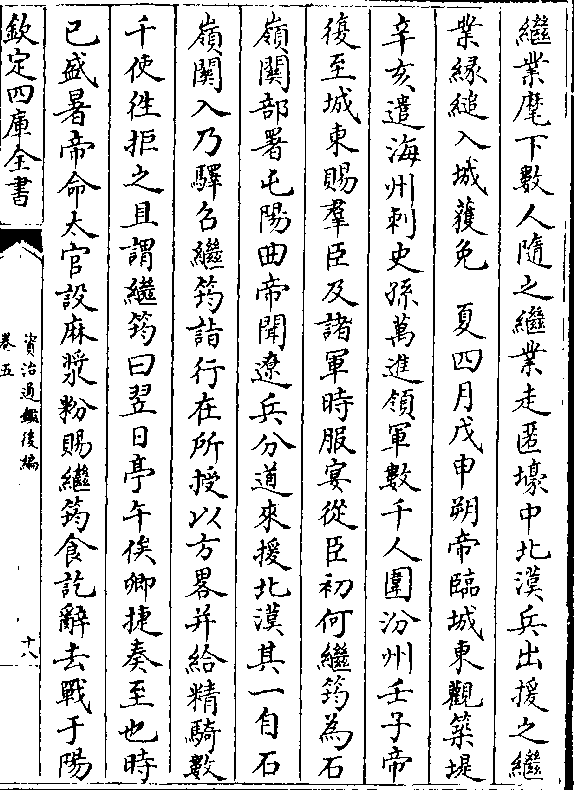 繼業麾下數人隨之繼業走匿壕中北漢兵出援之繼
業縁縋入城獲免　夏四月戊申朔帝臨城東觀築堤
辛亥遣海州刺史孫萬進領軍數千人圍汾州壬子帝
復至城東賜羣臣及諸軍時服宴從臣初何繼筠為石
嶺關部署屯陽曲帝聞遼兵分道來援北漢其一自石
嶺關入乃驛召繼筠詣行在所授以方畧并給精騎數
千使徃拒之且謂繼筠曰翌日亭午俟卿捷奏至也時
已盛暑帝命太官設麻漿粉賜繼筠食訖辭去戰于陽
欽定四庫全書
資治通鑑後編
卷五
十八